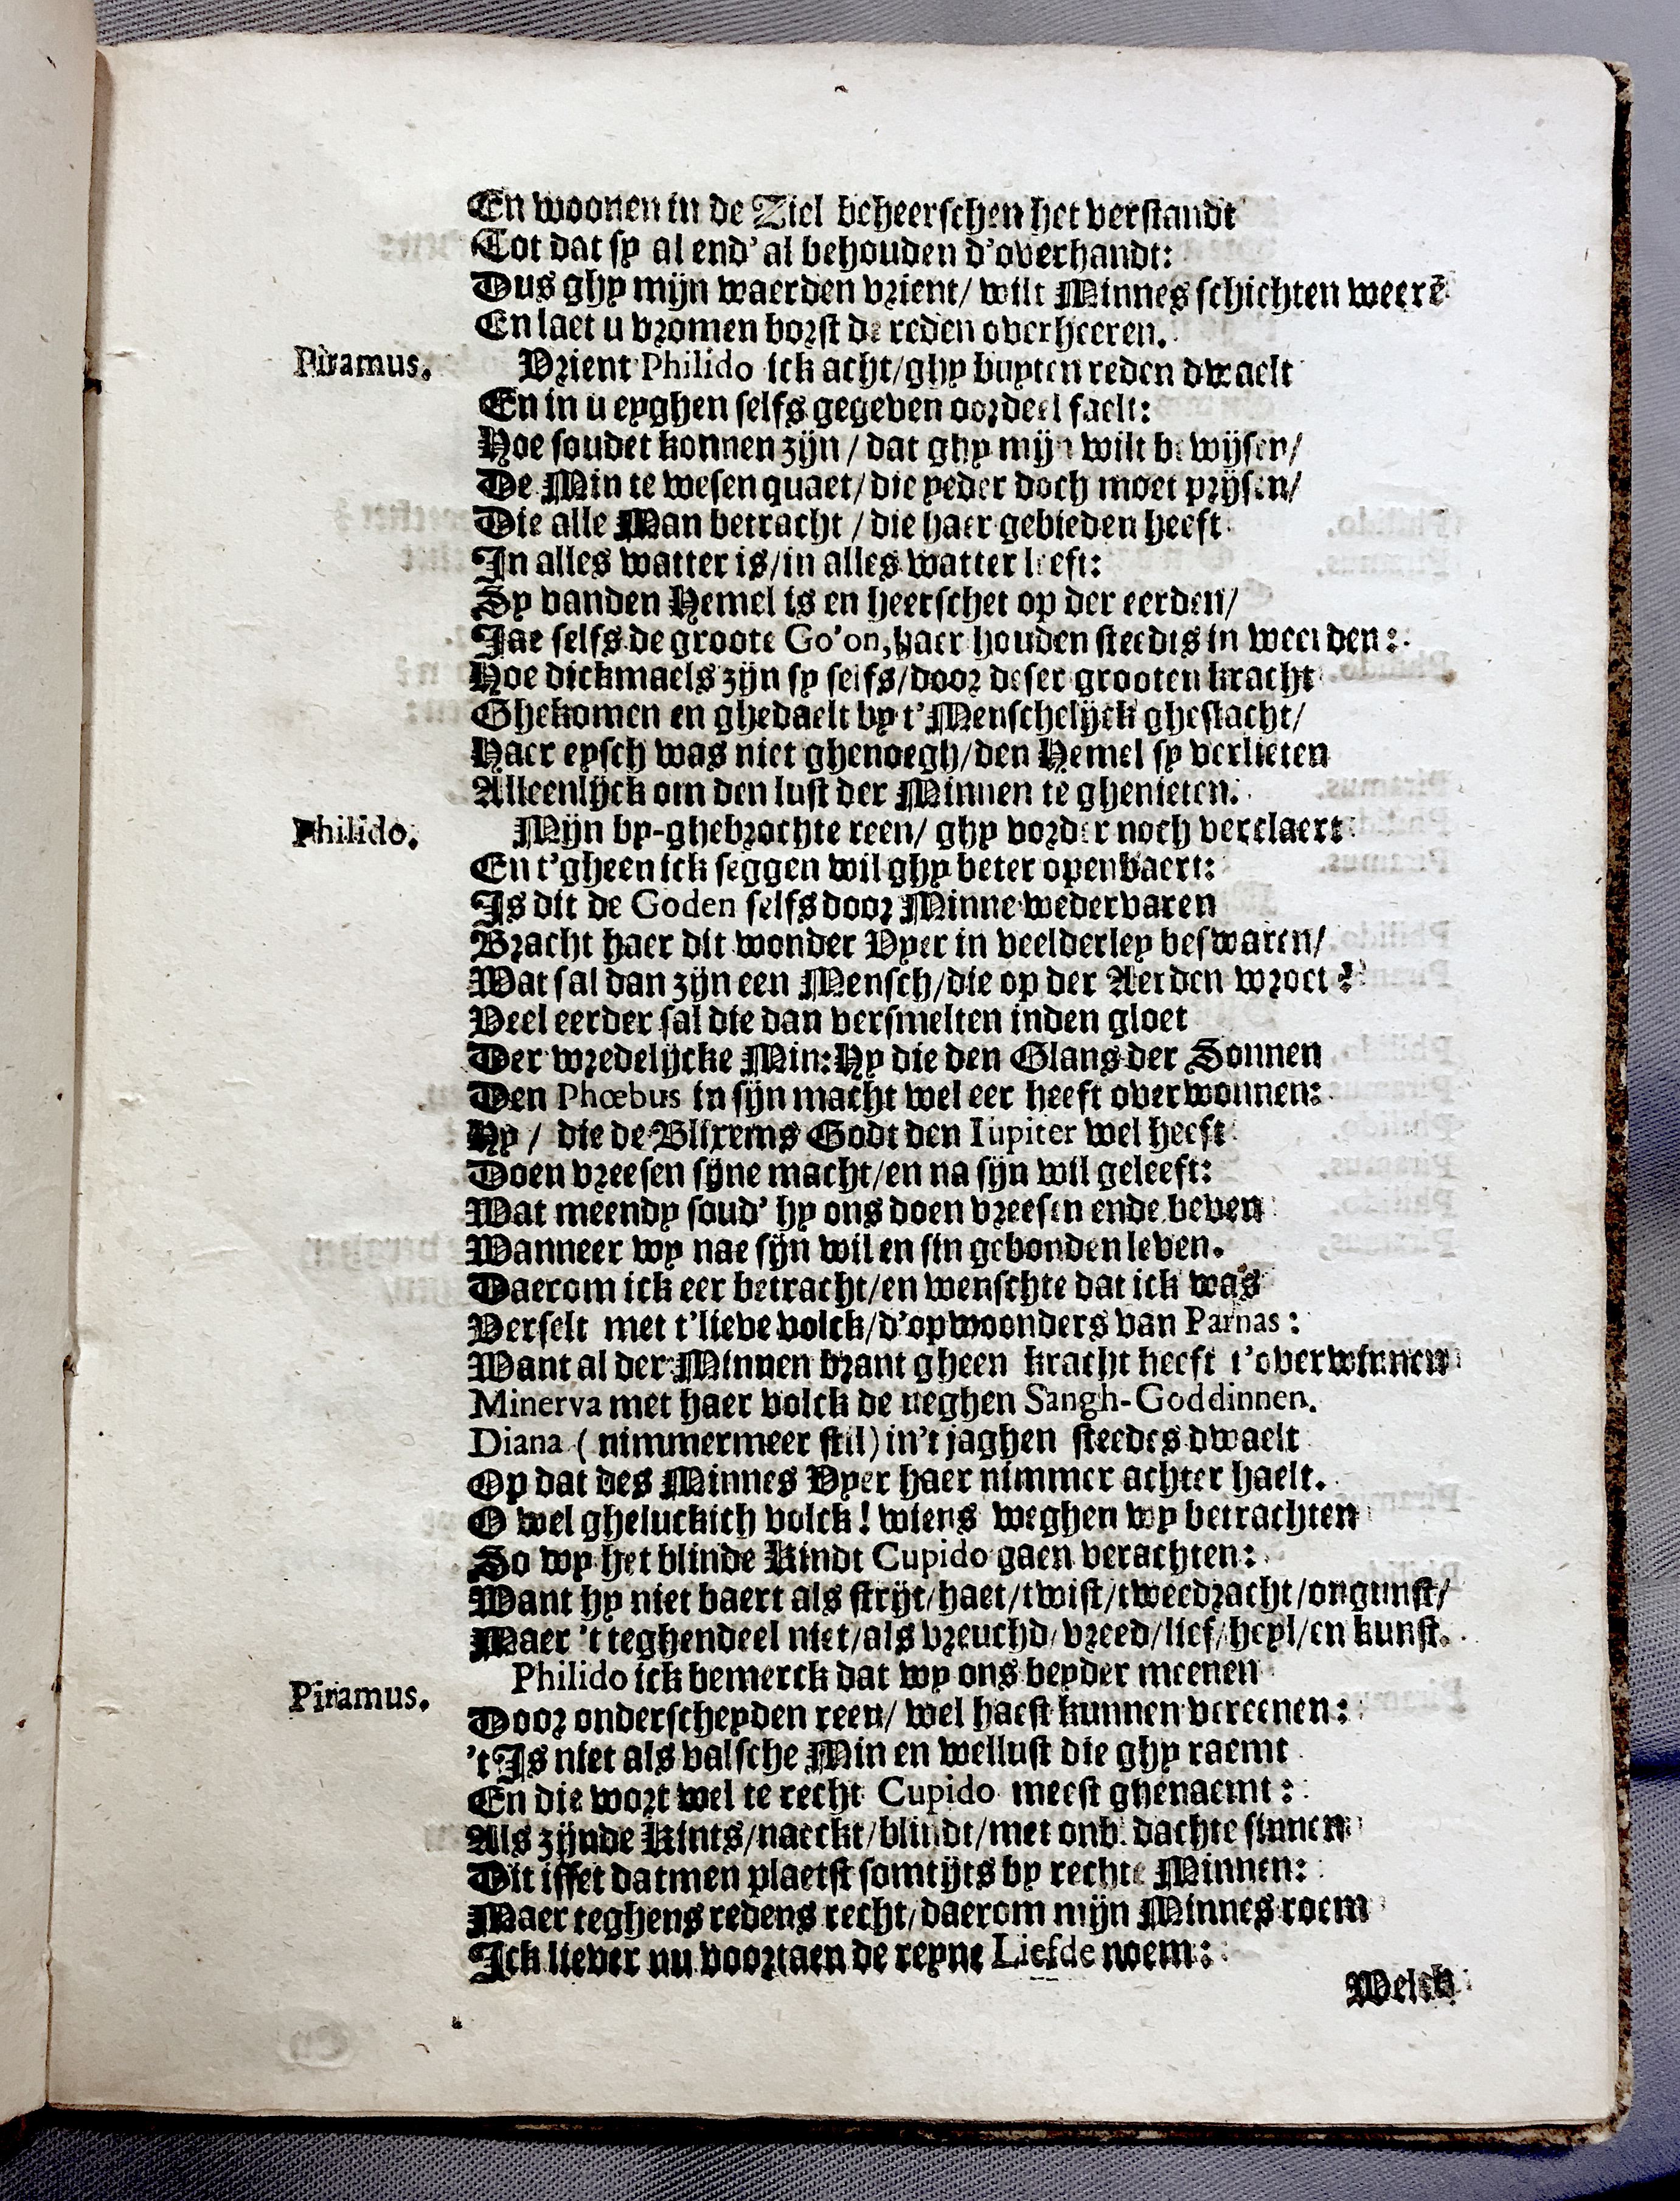 En woonen in de Ziel beheerschen het verstandt
Tot dat sy al end' al behouden d'overhandt:
Dus ghy mijn waerden vrient/ wilt Minnes schichten weerē
En laet u vromen borst de reden overheeren.
Piramus. Vrient Philido ick acht/ghy buyten reden dwaelt
En in u eyghen selfs gegeven oordeel faelt:
Hoe soudet konnen zijn / dat ghy mijn wilt bewijsen/
De Min te wesen quaet/die yeder doch moet prijsen/
Die alle Man betracht / die haer gebieden heeft
In alles watter is/in alles watter leeft:
Sy vanden Hemel is en heerschet op der eerden/
Jae selfs de groote Go'on, haer houden steedts in weerden:
Hoe dickmaels zijn sy selfs/door deser grooten kracht
Ghekomen en ghedaelt by t'Menschelijck gheslacht/
Haer eysch was niet ghenoegh/den Hemel sy verlieten
Alleenlijck om den lust der Minnen te ghenieten.
Philido. Mijn by-ghebrochte reen/ ghy vorder noch verclaert
En t'gheen ick seggen wil ghy beter openbaert:
Is dit de Goden selfs door Minne wedervaren
Bracht haer dit wonder Vyer in veelderley beswaren/
Wat sal dan zijn een Mensch/die op der Aerden wroet?
Veel eerder sal die dan versmelten inden gloet
Der wredelijcke Min: Hy die den Glans der Sonnen
Den Phœbus in sijn macht wel eer heeft overwonnen:
Hy / die de Blixems Godt den Iupiter wel heeft
Doen vreesen sijne macht/en na sijn wil geleeft:
Wat meendy soud' hy ons doen vreesen ende beven
Wanneer wy nae sijn wil en sin gebonden leven.
Daerom ick eer betracht/en wenschte dat ick was
Verselt met t'lieve volck/d'opwoonders van Parnas:
Want al der Minnen brant gheen kracht heeft t'overwinnen
Minerva met haer volck de neghen Sangh-Goddinnen.
Diana (nimmermeer stil) in't jaghen steedts dwaelt
Op dat des Minnes Vyer haer nimmer achter haelt.
O wel gheluckich volck! wiens weghen wy betrachten
So wy het blinde Kindt Cupido gaen verachten:
Want hy niet baert als strijt/haet/twist/tweedracht/ongunst/
Maer 't teghendeel niet/als vreuchd/vreed/lief/heyl/en kunst.
Piramus. Philido ick bemerck dat wy ons beyder meenen
Door onderscheyden reen/ wel haest kunnen vereenen:
't Is niet als valsche Min en wellust die ghy raemt
En die wort wel te recht Cupido meest ghenaemt:
Als zijnde Kints/naeckt/blindt/met onb.dachte sinnen
Dit isset datmen plaetst somtijts by rechte Minnen:
Maer teghens redens recht/daerom mijn Minnes roem
Ick liever nu voortaen de reyne Liefde noem:
Welck